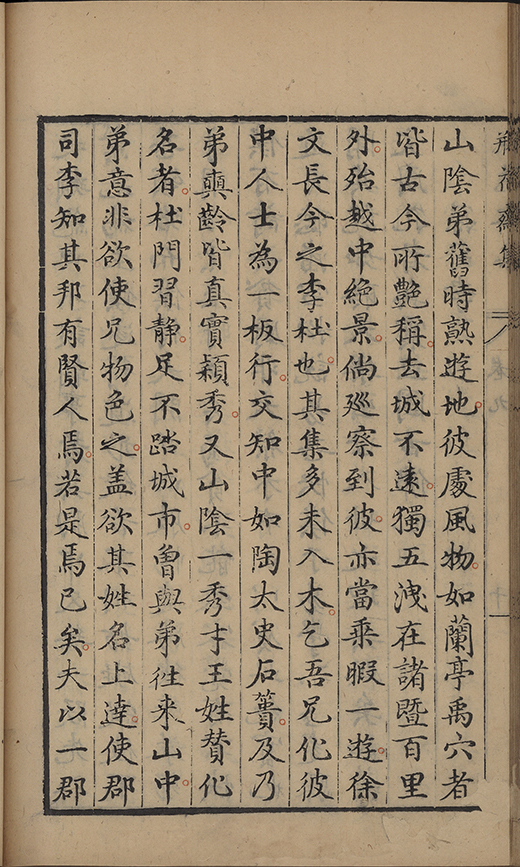 瓶花齋集 卷九 十一
山陰弟舊時熟遊地彼處風物如蘭亭禹穴者
皆古今所艷稱去城不遠獨五洩在諸暨百里
外殆越中絕景倘廵察到彼亦當乘暇一遊徐
文長今之李杜也其集多未入木乞吾兄化彼
中人士為一板行交知中如陶太史石簣及乃
弟奭齡皆真實穎秀又山陰一秀才王姓贊化
名者杜門習静足不踏城市曾與弟徃来山中
弟意非欲使兄物色之盖欲其姓名上達使郡
司李知其邦有賢人焉若是焉已矣夫以一郡